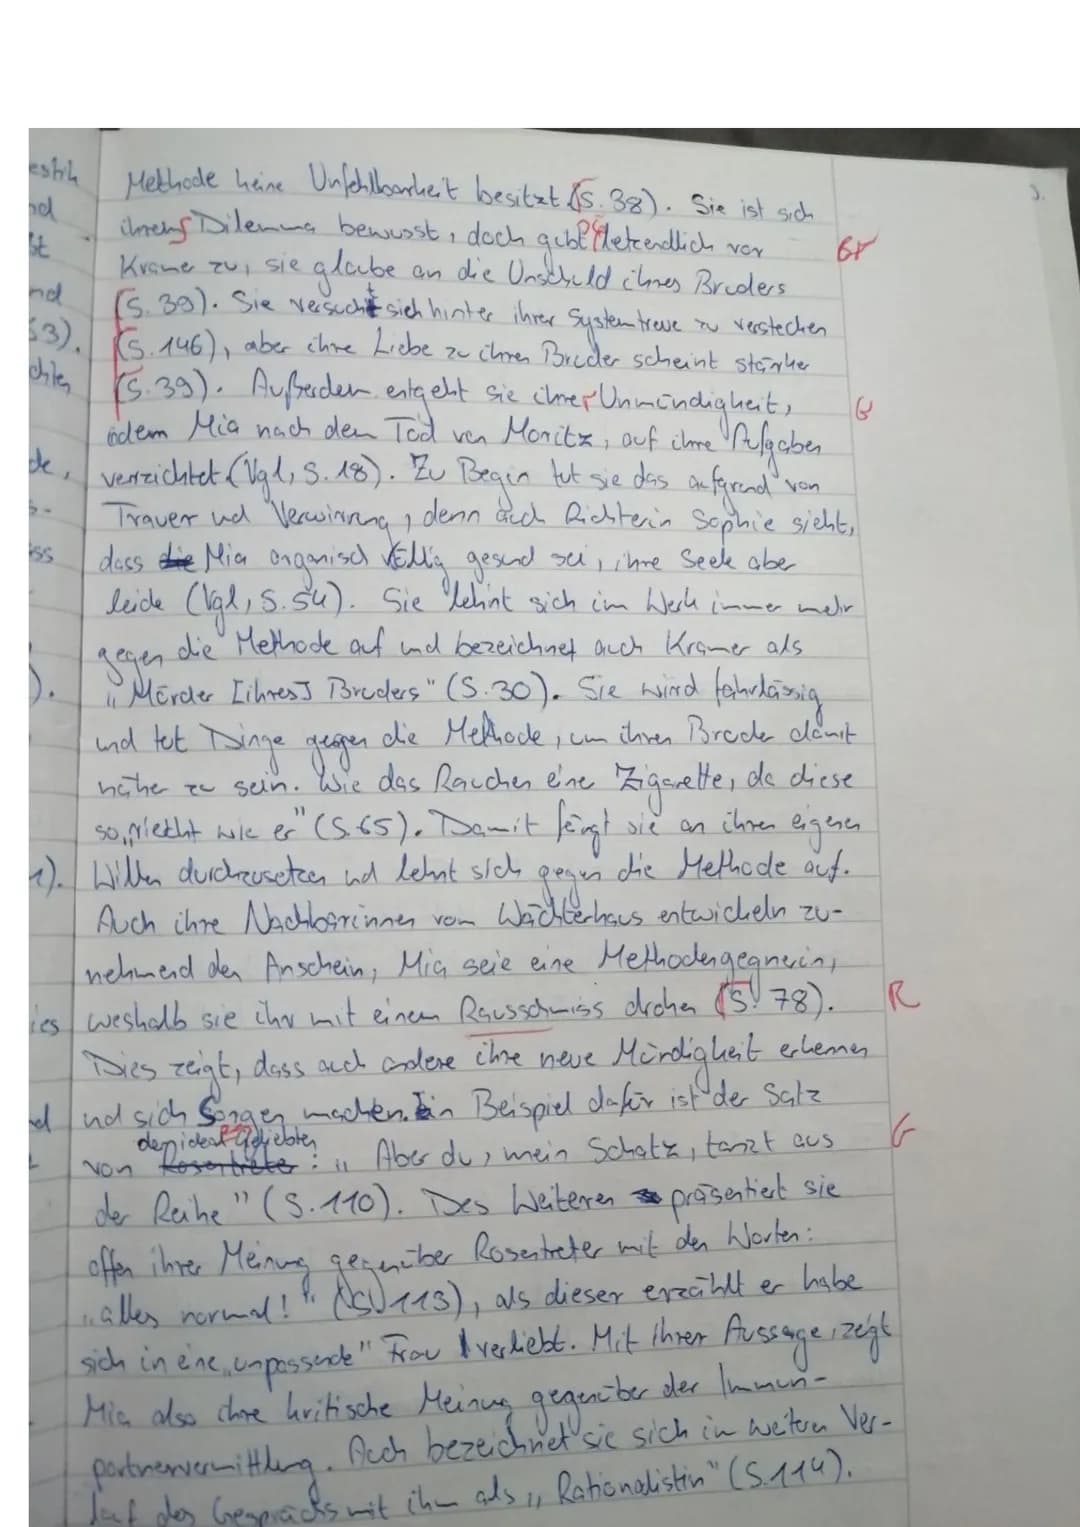 Methode keine Unfehlbarkeit besitzt (S. 38). Sie ist sich
ihrers Dilemma bewusst, doch gibt letzendlich vor
Kramer zu, sie glaube an die Unschuld ihres Bruders
(S. 39). Sie versucht sich hinter ihrer Systemtreue zu verstecken
(S. 146), aber ihre Liebe zu ihrem Bruder scheint stärker
(S. 39). Außerdem entgeht sie ihrer Unmündigkeit,
indem Mia nach dem Tod von Moritz, auf ihre Aufgaben
verzichtet (Vgl, S. 18). Zu Begin tut sie das aufgrund von
Trauer und Verwirrung, denn auch Richterin Sophie sieht,
dass die Mia organisch völlig gesund sei, ihre Seele aber
leide (Vgl, S. 54). Sie lehnt sich im Werk immer mehr
gegen die Methode auf und bezeichnet auch Kramer als
"Mörder [ihres] Bruders" (S. 30). Sie wird fahrlässig
und tut Dinge gegen die Methode, um ihren Bruder damit
näher zu sein. Wie das Rauchen eine Zigarette, da diese
so "riecht wie er" (S. 65). Damit fängt sie an ihren eigenen
Willen durchzusetzen und lehnt sich gegen die Methode auf.
Auch ihre Nachbarinnen vom Wächterhaus entwickeln zu-
nehmend den Anschein, Mia seie eine Methodengegnerin,
weshalb sie ihr mit einem Rausschmiss drohen (S. 78).
R
Dies zeigt, dass auch andere ihre neue Mündigkeit erkennen
und sich Sorgen machen. Ein Beispiel dafür ist der Satz
der ideal Geliebten
von Rosentreter: "Aber du, mein Schatz, tanzt aus
G
der Reihe" (S. 110). Des Weiteren präsentiert sie
offen ihrer Meinung gegenüber Rosentreter mit den Worten:
"alles normal!" (S. 113), als dieser erzählt er habe
sich in eine "unpassende" Frau verliebt. Mit ihrer Aussage, zeigt
Mia also ihre kritische Meinung gegenüber der Immun-
partnervermittlung. Auch bezeichnet sie sich in weiteren Ver-
lauf des Gesprächs mit ihm als "Rationalistin" (S. 114).